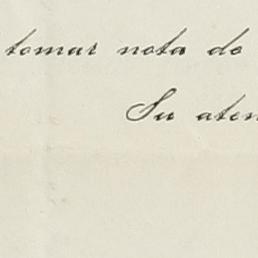 tomar nota de
Su aten